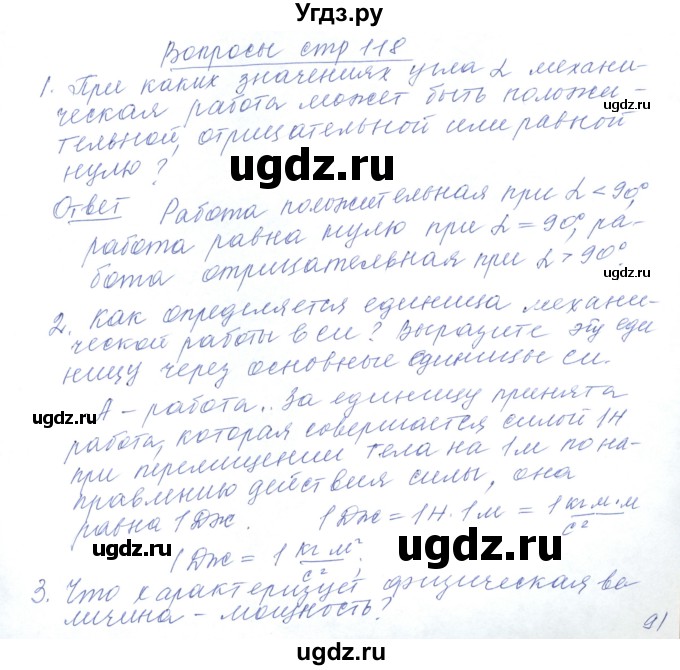 Угдз.ру
Вопросы стр 118
1. При каких значениях угла α механи-
ческая работа может быть положи-
тельной, отрицательной или равной
нулю?
Ответ Работа положительная при α < 90°,
работа равна нулю при α = 90°, ра-
бота отрицательная при α > 90°.
2. Как определяется единица механи-
ческой работы в си? Выразите эту еди
ницу через основные единицы си.
А - работа.. За единицу принята
работа, которая совершается силой 1Н
при перемещении тела на 1м по на-
правлению действия силы, она
равна 1 Дж. 1 Дж = 1Н·1м = 1 кг м·м/с²
1 Дж = 1 кг м²/с².
3. Что характеризует физическая ве-
личина - мощность?
91
ugdz.ru
ugdz.ru
ugdz.ru
ugdz.ru
ugdz.ru
ugdz.ru
ugdz.ru
ugdz.ru